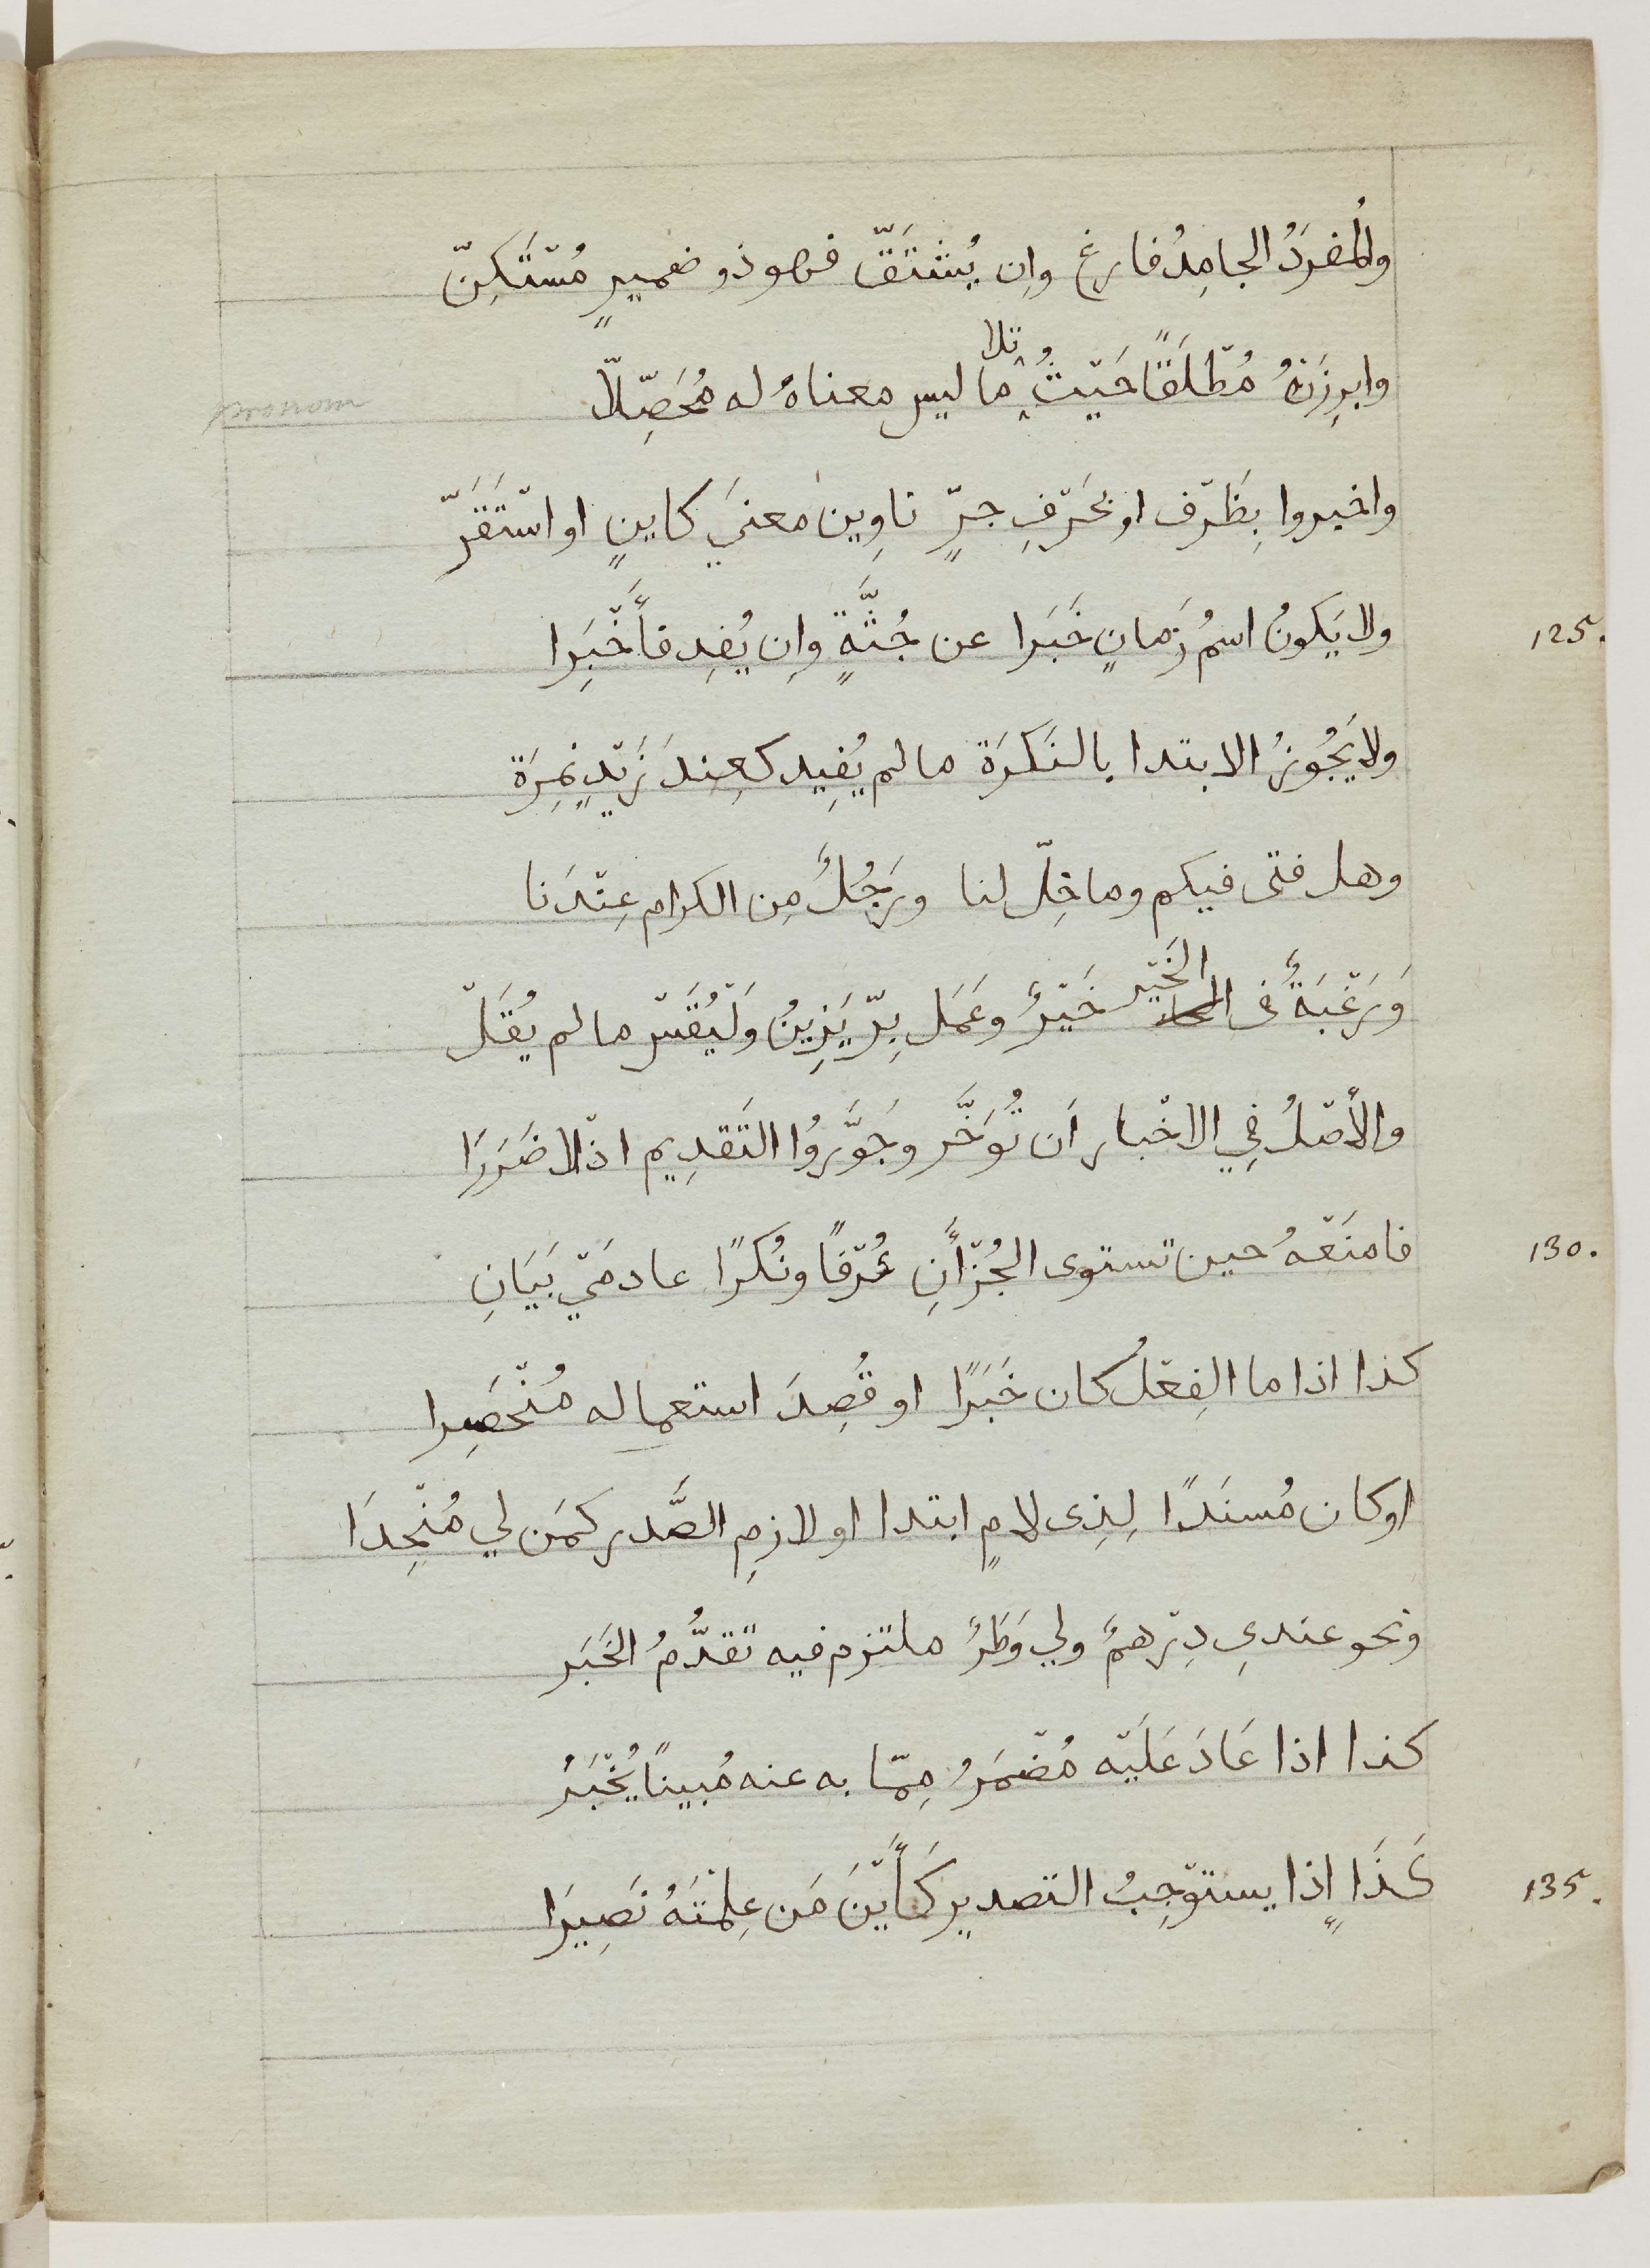 والمُفرَدُ الجامِدُ فارغ وإن يُشْتَقّ فهو ذو ضميرٍ مُسْتَكِنّ
وابرِزَنْهُ مُطْلَقًا حَيْثُ تلا ما ليس معناهُ له مُحَصِّلًا
واخبروا بِظَرْف او بحَرْفِ جرٍّ ناوِين معنَي كاينٍ او اسْتَقَرّ
125. ولا يَكونُ اسمُ زَمانٍ خَبَرا عن جُثَّةٍ وإن يُفِد فأَخْبِرَا
ولا يَجُوزُ الابتدا بالنَكرَة ما لم يُفِيد كعِندَ زَيْدٍ نَمِرَة
وهل فتى فيكم وما خِلّ لنا ورَجُلٌ مِن الكرام عِنْدَنا
وَرَغْبَةٌ في الخَيْر خَيْرٌ وعَمَل بِرّ يَزِينُ وَلْيُقَسْ ما لم يُقَلْ
والأصْلُ فِي الاخْبار اَن تُوَخَّر وجَوَّزُوا التَقدِيم اذْ لا ضَرَرَا
130. فامنَعْهُ حين تستوى الجُزْأَنِ عُرْفًا ونُكرًا عادمَيْ بَيَانِ
كذا اذا ما الفِعْلُ كان خَبَرًا او قُصِدَ استعماله مُنْحَصِرا
او كان مُسنَدًا لِذِى لامٍ ابتدا او لازمِ الصَّدر كمَن لي مُنْجِدَا
ونحو عندىِ دِرْهمٌ ولي وَطَرٌ ملتزم فيه تقدُّمُ الخَبَر
كذا اذا عَادَ عَلَيْه مُضْمَرُ مِمّا به عنه مُبينًا يُخْبَرُ
135. كَذَا إذا يستوْجِبُ التصدير كَأَيْنَ مَن عِلمْتَهُ نَصِيرَا
pronoum